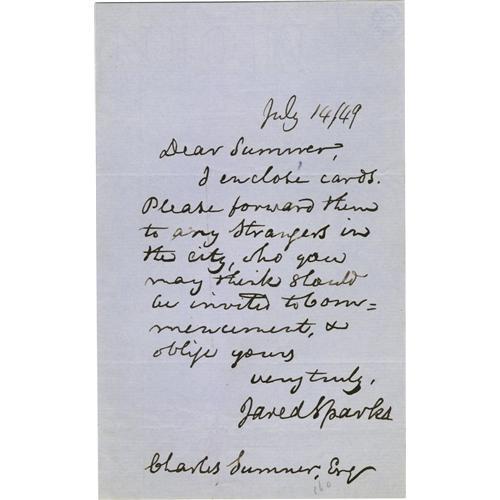 July 14/49
Dear Sumner,
I enclose cards.
Please forward them
to any strangers in
the city, who you
may think should
be invited to Com=
mencement, &
oblige yours
very truly,
Jared Sparks
Charles Sumner, Esq